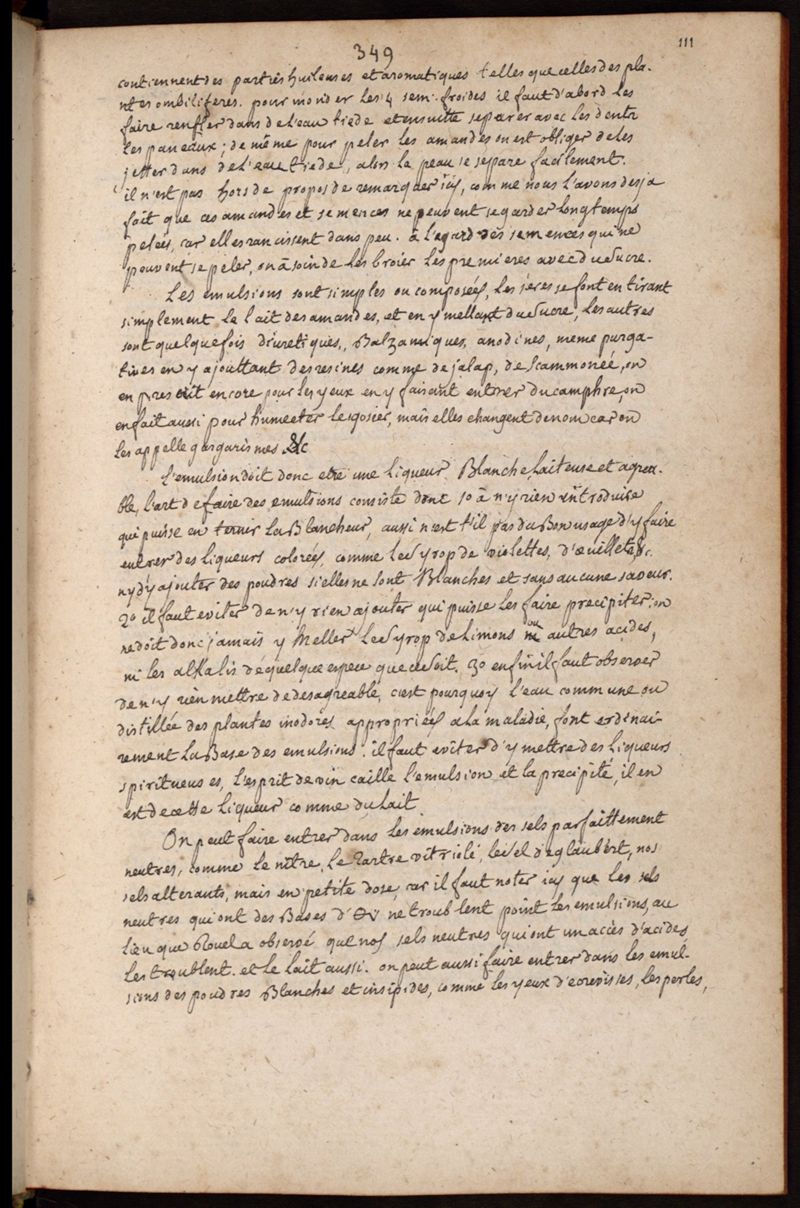 349
111
contiennent des parties huileuses et aromatiques telles que celles des pla-
ntes ombiliferes. pour monder les 4 sem. froides il faut d'abord les
faire renfler dans de l'eau tiede et ensuitte separer avec les dents
les paneaux; de même pour peler les amandes on est obliger de les
jetter dans de l'eau tiede, alors la peau se separe facilement.
il n'est pas hors de propos de remarquer icy, comme nous l'avons desja
fait que ces amandes et semences ne peuvent se garder longtemps
pelées, car elles rancissent dans peu. à l'egard des semences qui ne
peuvent se peler, on à soin de les broier les premieres avec du sucre.
Les emulsions sont simples ou composées, les 1eres se font en tirant
simplement le lait des amandes, et en y mettant du sucre, les autres
sont quelquefois diuretiques, Balzamiques, anodines, meme purga-
tives en y ajouttant des resines comme de jalap, de scammonée, on
en prescrit encore pour les yeux en y faisant entrer du camphre, on
en fait aussi pour humecter le gosier, mais elles changent de nom car on
les appelle gargarismes &c
l'emulsion doit donc etre une liqueur Blanche, laiteuse et agrea-
ble, l'art de faire des emulsions consiste dont 1o à n'y rien introduire
qui puisse en ternir la Blancheur, aussi n'est t'il pas du Bon usage d'y faire
entrer des liqueurs colorées, comme le syrop de violettes, d'œuillets &c.
ny d'y ajouter des poudres si elles ne sont Blanches et sans aucune saveur.
2o il faut eviter de n'y rien ajouter qui puisse les faire precipiter. on
ne doit donc jamais y meller le syrop de limons ou autres acides,
ni les alkalis de quelque espece que ce soit. 3o enfin il faut observer
de n'y rien mettre de desagreable, c'est pourquoy l'eau commune ou
distillée des plantes inodores appropriées a la maladie, font ordinai-
rement la Base des emulsions. il faut eviter d'y mettre des liqueurs
spiritueuses, l'esprit de vin caille l'emulsion et la precipite, il en
est de cette liqueur comme du lait.
On peut faire entrer dans les emulsions des sels parfaittement
neutres, comme le nitre, le tartre vitriolé, le sel de glaubert, nos
sels alterants, mais en petite dose, car il faut noter icy que les sels
neutres qui ont des Bases d' ne troublent point les emulsions, au
lieu que Rouel a observé que nos sels neutres qui ont un accès d'acides
les troublent. et le lait aussi. on peut aussi faire entrer dans les emul-
sions des poudres Blanches et insipides, comme les yeux d'ecrevisses, les perles,